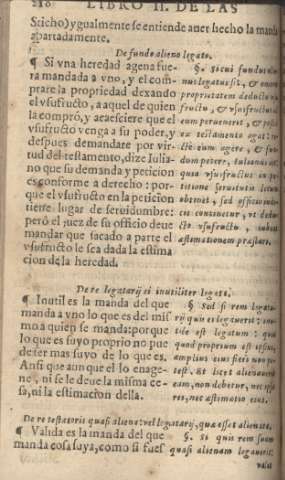 218 LIBRO II. DE LAS
Sticho) ygualmente se entiende auer hecho la manda
apartadamente.
De fundo alieno legato.
¶ Si vna heredad agena fue
ra mandada a vno, y el com-
prare la propriedad dexando
el vsufructo, a aquel de quien
la comprò, y acaesciere que el
vsufructo venga a su poder, y
despues demandare por vir-
tud del testamento, dize Iulia-
no que su demanda y peticion
es conforme a derecho: por-
que el vsufructo en la peticion
tiene lugar de seruidumbre:
però el juez de su officio deue
mandar que sacado a parte el
vsufructo le sea dada la estima
cion de la heredad.
§. Si cui fundus alie
nus legatus sit, & emerit
proprietatem deducto vsu
fructu, & vsusfructus ad
eum peruenerit, & postea
ex testamento agat: re-
cte eum agere, & fun-
dum petere, Iulianus ait,
quia vsusfructus in pe-
titione seruitutis locum
obtinet, sed officio iudi-
cis continetur, vt dedu-
cto vsufructu, iubeat
æstimationem præstari.
De re legatarij ei inutiliter legata.
¶ Inutil es la manda del que
manda a vno lo que es del mis
mo a quien se manda: porque
lo que es suyo proprio no pue
de ser mas suyo de lo que es.
Ansi que aunque el lo enage-
ne, ni se le deue la misma co-
sa, ni la estimacion della.
§ Sed si rem legata-
rij quis ei legauerit: inu-
tile est legatum: quia
quod proprium est ipsius,
amplius eius fieri non po-
test. Et licet alienauerit
eam, non debetur, nec ipsa
res, nec æstimatio eius.
De re testatoris quasi aliena: vel legatarij, quæ esset aliena.
¶ Valida es la manda del que
manda cosa suya, como si fues
§. Si quis rem suam
quasi alienam legauerit:
valet